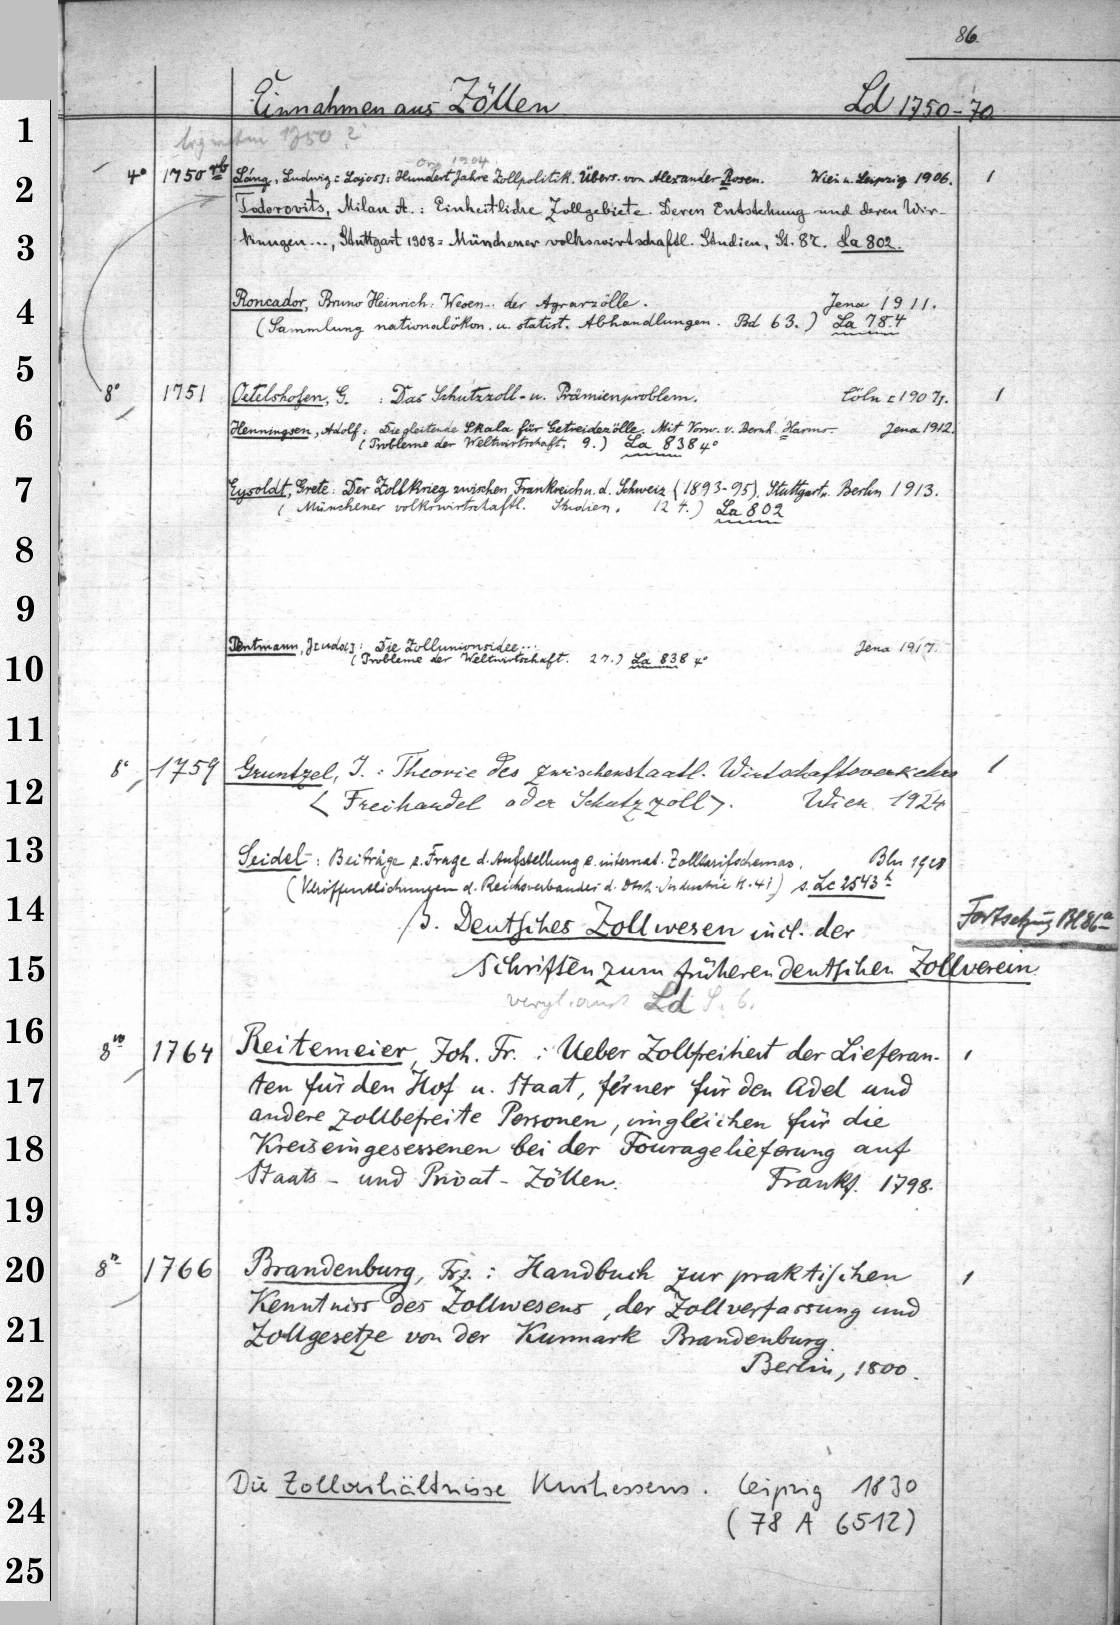 86.
Einnahmen aus Zöllen Ld 1750-70.
1750 ?
Org. 1904
4° 1750 Láng, Ludwig [= Lajos]: Hundert Jahre Zollpolitik. Übers. von Alexander Rosen. Wien u. Leipzig 1906. 1
Todorovits, Milan A.: Einheitliche Zollgebiete. Deren Entstehung und deren Wir-
kungen..., Stuttgart 1908 = Münchener volkswirtschaftl. Studien, St. 87. La 802.
Roncador, Bruno Heinrich: Wesen... der Agrarzölle. Jena 1911.
(Sammlung nationalökon. u. statist. Abhandlungen. Bd 63.) La 784
8° 1751 Oetelshofen, G. : Das Schutzzoll- u. Prämienproblem. Cöln [1907]. 1
Henningsen, Adolf: Die gleitende Skala für Getreidezölle. Mit Vorw. v. Bernh. Harms. Jena 1912.
(Probleme der Weltwirtschaft. 9.) La 838 4°
Eysoldt, Grete: Der Zollkrieg zwischen Frankreich u. d. Schweiz (1893-95). Stuttgart u. Berlin 1913.
(Münchener volkswirtschaftl. Studien. 124.) La 802
Pentmann, J[uda]: Die Zollunionsidee... Jena 1917.
(Probleme der Weltwirtschaft. 27.) La 838 4°
8° 1759 Gruntzel, J. : Theorie des zwischenstaatl. Wirtschaftsverkehrs 1
< Freihandel oder Schutzzoll>. Wien 1924
Seidel: Beiträge z. Frage d. Aufstellung e. internat. Zolltarifschemas. Bln 1928
(Veröffentlichungen d. Reichsverbandes d. Dtsch. Industrie H. 41) s. Lc 2543
β. Deutsches Zollwesen incl. der
Fortsetzung Bl 86a
Schriften zum früheren deutschen Zollverein.
vergl. auch Ld S. 6.
8° 1764 Reitemeier, Joh. Fr. : Ueber Zollfreiheit der Lieferan- 1
ten für den Hof u. Staat, ferner für den Adel und
andere zollbefreite Personen, imgleichen für die
Kreiseingesessenen bei der Fouragelieferung auf
Staats- und Privat-Zöllen. Frankf. 1798.
8° 1766 Brandenburg, Frz. : Handbuch zur praktischen 1
Kenntniss des Zollwesens, der Zollverfassung und
Zollgesetze von der Kurmark Brandenburg.
Berlin, 1800.
Die Zollverhältnisse Kurhessens. Leipzig 1830
(78 A 6512)
1
2
3
4
5
6
7
8
9
10
11
12
13
14
15
16
17
18
19
20
21
22
23
24
25